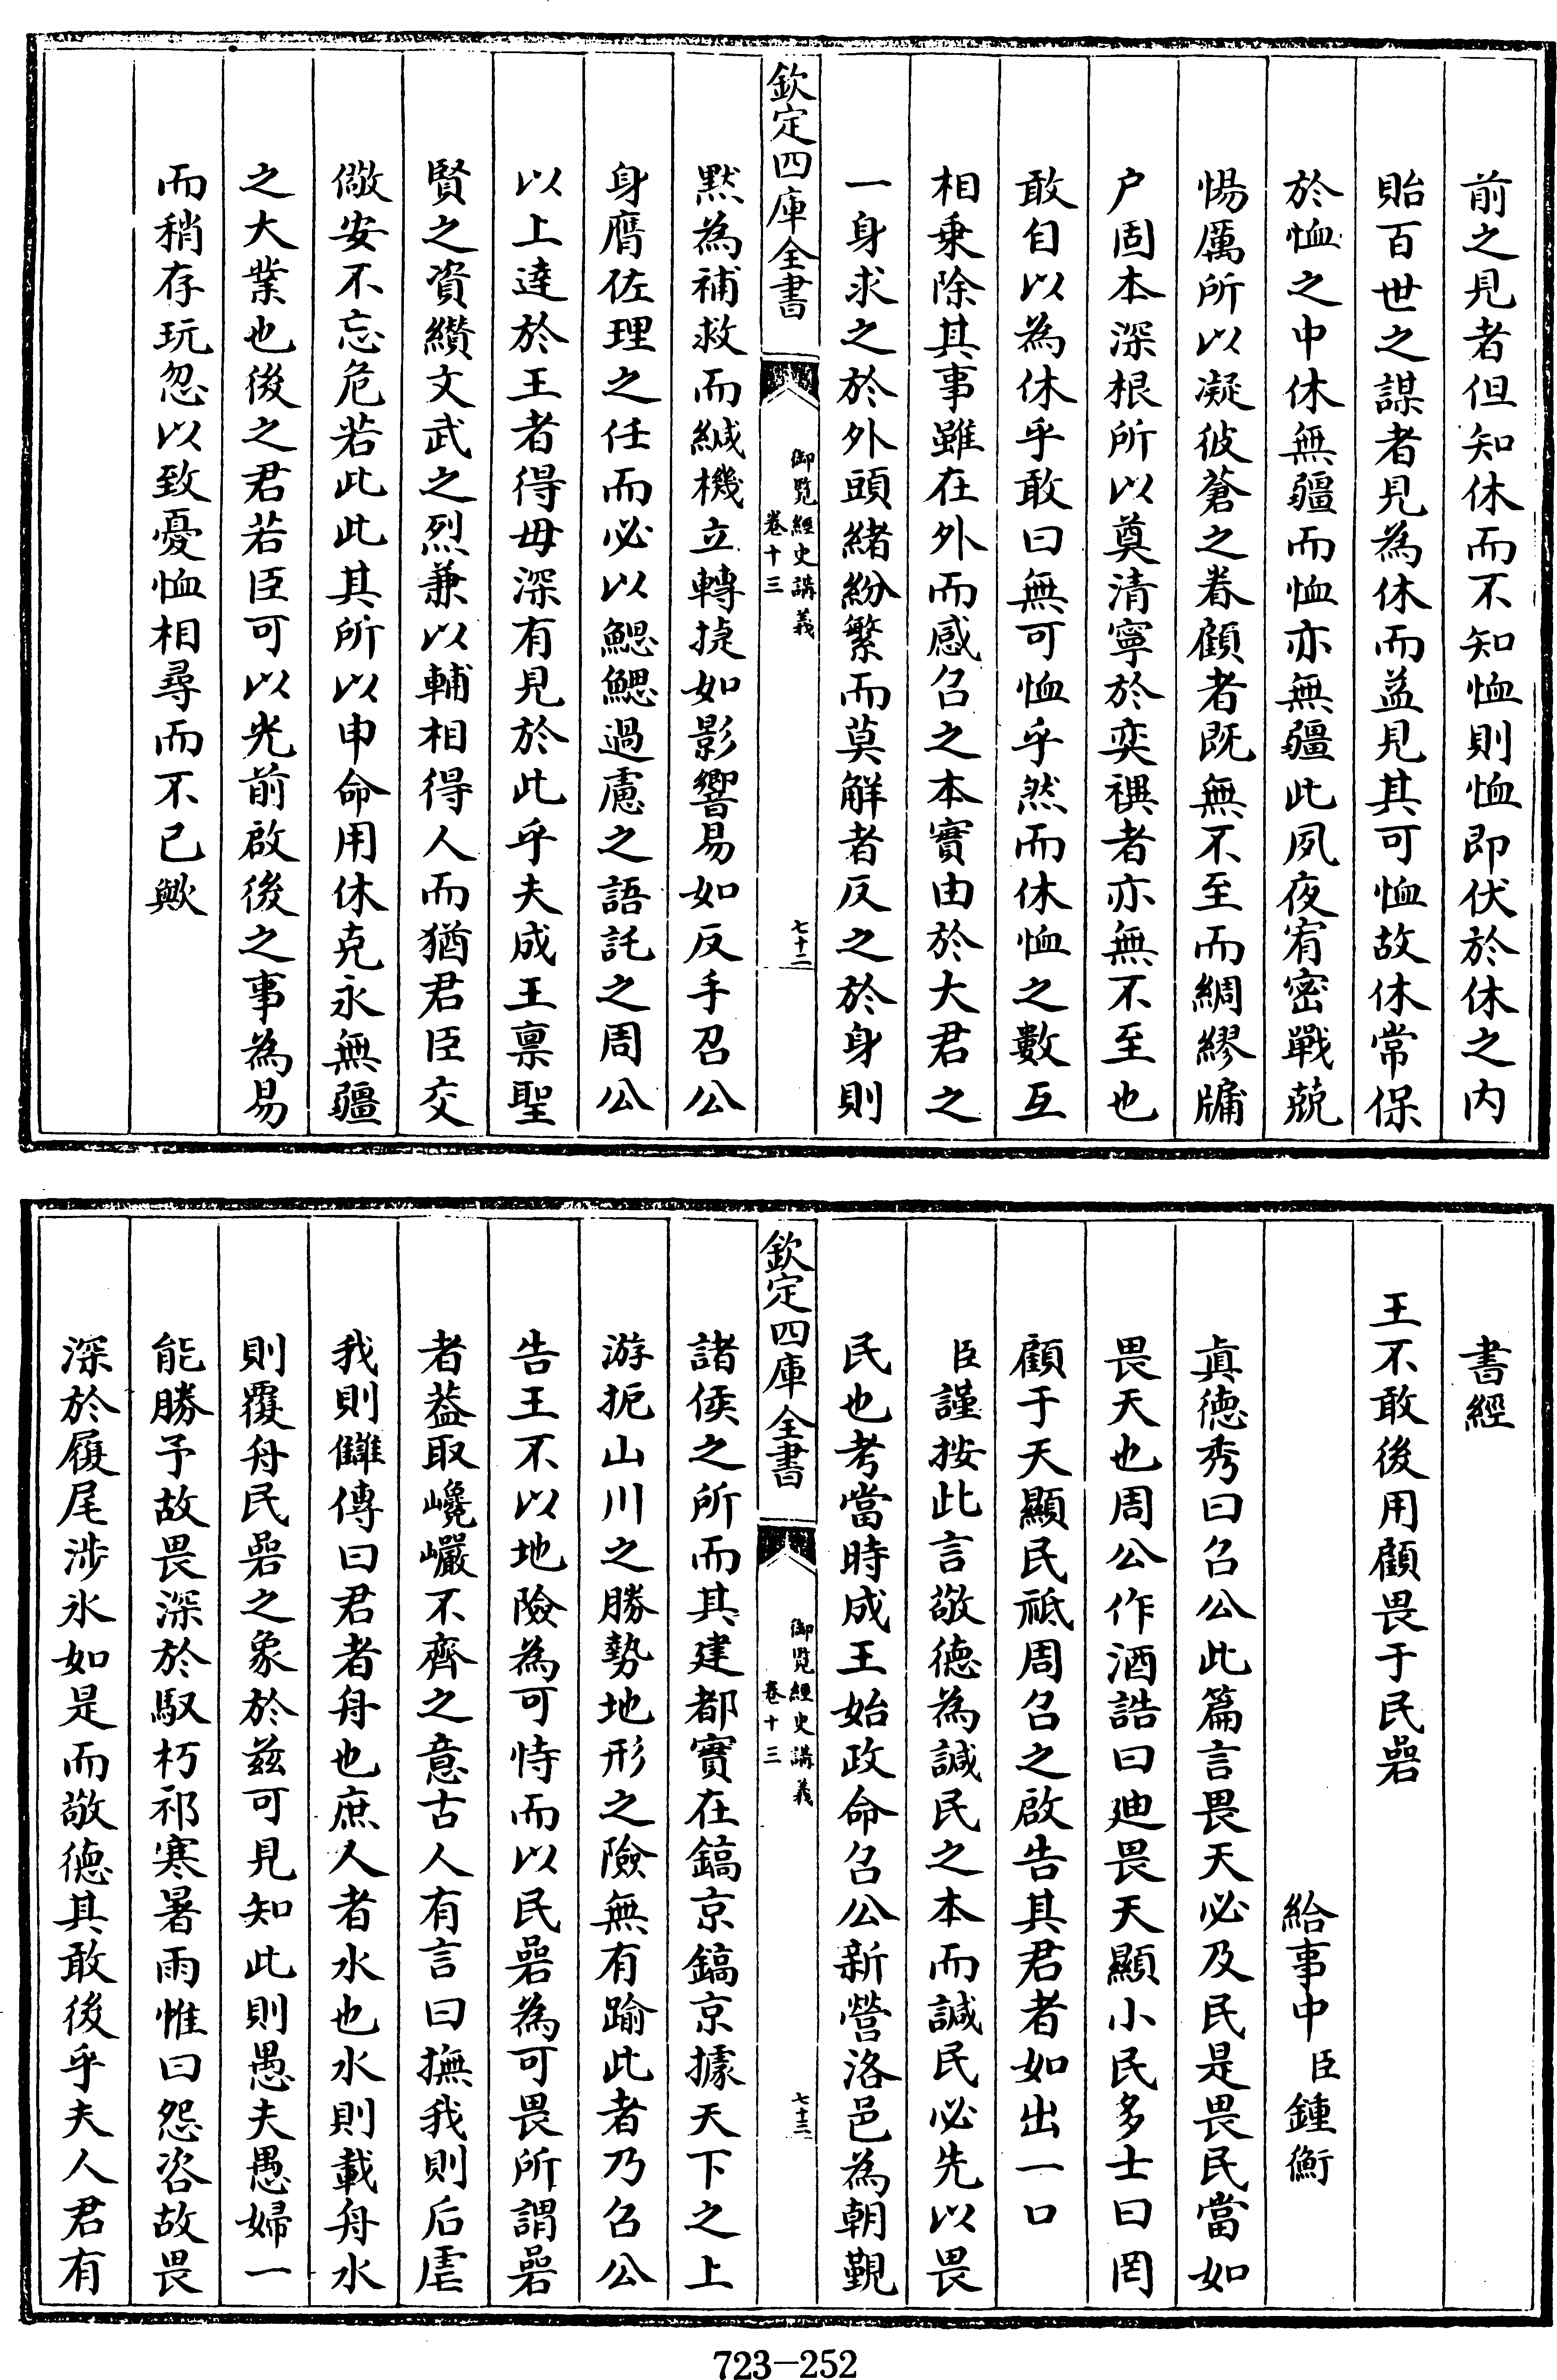 前之見者但知休而不知恤則恤即伏於休之内
貽百世之謀者見為休而益見其可恤故休常保
於恤之中休無疆而恤亦無疆此夙夜宥密戰兢
惕厲所以凝彼蒼之眷顧者既無不至而綢繆牖
户固本深根所以奠清寧於奕禩者亦無不至也
敢自以為休乎敢曰無可恤乎然而休恤之數互
相乗除其事雖在外而感召之本實由於大君之
一身求之於外頭緒紛繁而莫解者反之於身則
欽定四庫全書
御覽經史講義
卷十三
七十二
黙為補救而緘機立轉捷如影響易如反手召公
身膺佐理之任而必以鰓鰓過慮之語託之周公
以上達於王者得毋深有見於此乎夫成王禀聖
賢之資纘文武之烈兼以輔相得人而猶君臣交
儆安不忘危若此此其所以申命用休克永無疆
之大業也後之君若臣可以光前啟後之事為易
而稍存玩忽以致憂恤相尋而不已歟
書經
王不敢後用顧畏于民碞
給事中臣鍾衡
真徳秀曰召公此篇言畏天必及民是畏民當如
畏天也周公作酒誥曰迪畏天顯小民多士曰罔
顧于天顯民祗周召之啟告其君者如出一口
臣謹按此言敬德為諴民之本而諴民必先以畏
民也考當時成王始政命召公新營洛邑為朝覲
欽定四庫全書
御覽經史講義
卷十三
七十三
諸侯之所而其建都實在鎬京鎬京據天下之上
游扼山川之勝勢地形之險無有踰此者乃召公
告王不以地險為可恃而以民碞為可畏所謂碞
者葢取巉巖不齊之意古人有言曰撫我則后虐
我則讎傳曰君者舟也庶人者水也水則載舟水
則覆舟民碞之象於兹可見知此則愚夫愚婦一
能勝予故畏深於馭朽祁寒暑雨惟曰怨咨故畏
深於履尾涉氷如是而敬徳其敢後乎夫人君有
723-252